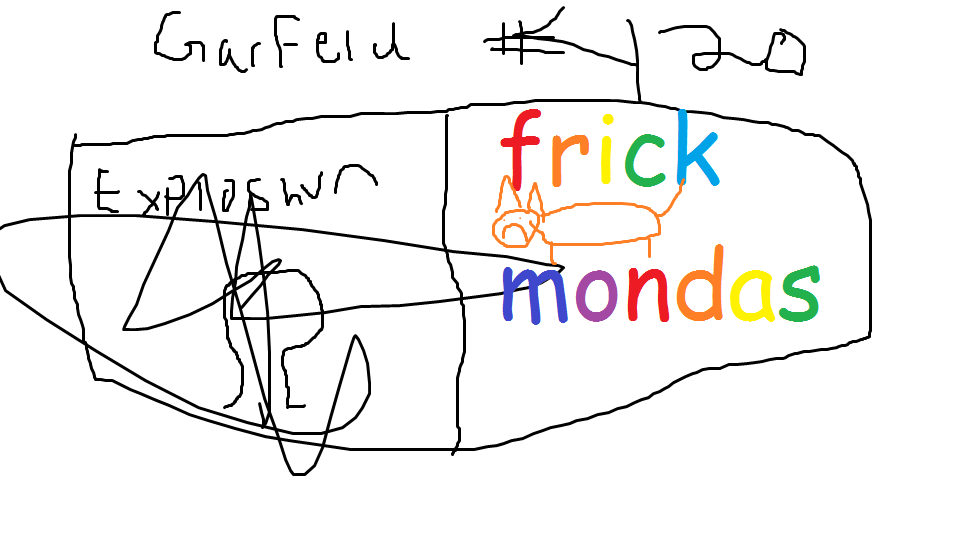 GarFeld # 20
Exploshun
frick
mondas